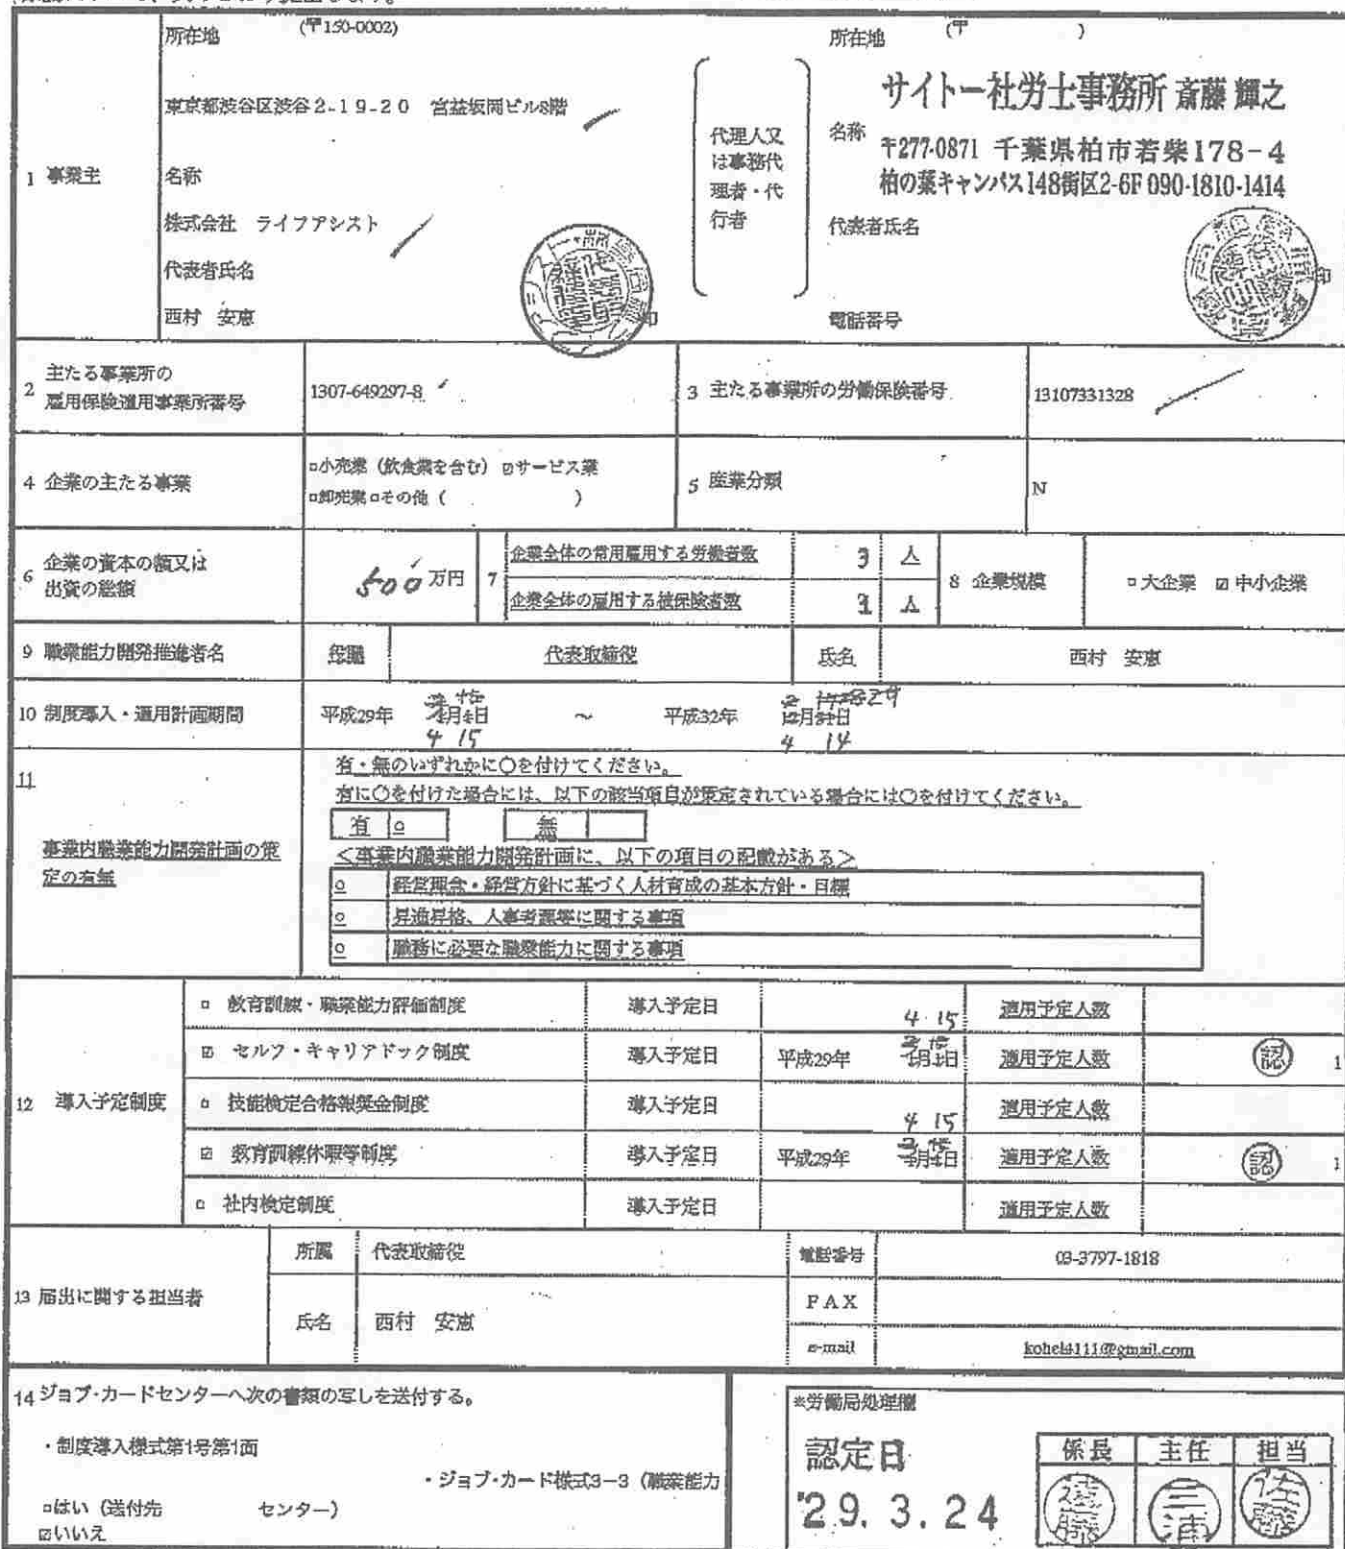 所在地 (〒150-0002)
東京都渋谷区渋谷2-19-20 宮益坂岡ビル8階
1 事業主
名称
株式会社 ライフアシスト
代表者氏名
西村 安恵
印
代理人又
は事務代
理者・代
行者
所在地 (〒 )
サイトー社労士事務所 斎藤 輝之
名称
〒277-0871 千葉県柏市若柴178-4
柏の葉キャンパス148街区2-6F 090-1810-1414
代表者氏名
印
電話番号
2 主たる事業所の
雇用保険適用事業所番号
1307-649297-8
3 主たる事業所の労働保険番号
13107331328
4 企業の主たる事業
□小売業(飲食業を含む) ☑サービス業
□卸売業□その他( )
5 産業分類
N
6 企業の資本の額又は
出資の総額
500 万円
7 企業全体の常用雇用する労働者数 3 人
企業全体の雇用する被保険者数 人
8 企業規模
□大企業 ☑中小企業
9 職業能力開発推進者名
役職 代表取締役
氏名 西村 安恵
10 制度導入・適用計画期間
平成29年 月 日 ~ 平成32年 月 日
4 15
4 14
11
事業内職業能力開発計画の策
定の有無
有・無のいずれかに○を付けてください。
有に○を付けた場合には、以下の該当項目が策定されている場合には○を付けてください。
有 ○ 無
<事業内職業能力開発計画に、以下の項目の記載がある>
○ 経営理念・経営方針に基づく人材育成の基本方針・目標
○ 昇進昇格、人事考課等に関する事項
○ 職務に必要な職業能力に関する事項
12 導入予定制度
□ 教育訓練・職業能力評価制度 導入予定日 適用予定人数
4 15
☑ セルフ・キャリアドック制度 導入予定日 平成29年 月 日 適用予定人数 認 1
□ 技能検定合格報奨金制度 導入予定日 適用予定人数
4 15
☑ 教育訓練休暇等制度 導入予定日 平成29年 月 日 適用予定人数 認 1
□ 社内検定制度 導入予定日 適用予定人数
13 届出に関する担当者
所属 代表取締役
氏名 西村 安恵
電話番号 03-3797-1818
FAX
e-mail
14 ジョブ・カードセンターへ次の書類の写しを送付する。
・制度導入様式第1号第1面
・ジョブ・カード様式3-3(職業能力
□はい(送付先 センター)
☑いいえ
※労働局処理欄
認定日
29.3.24
係長 主任 担当
遠藤 三浦 佐藤